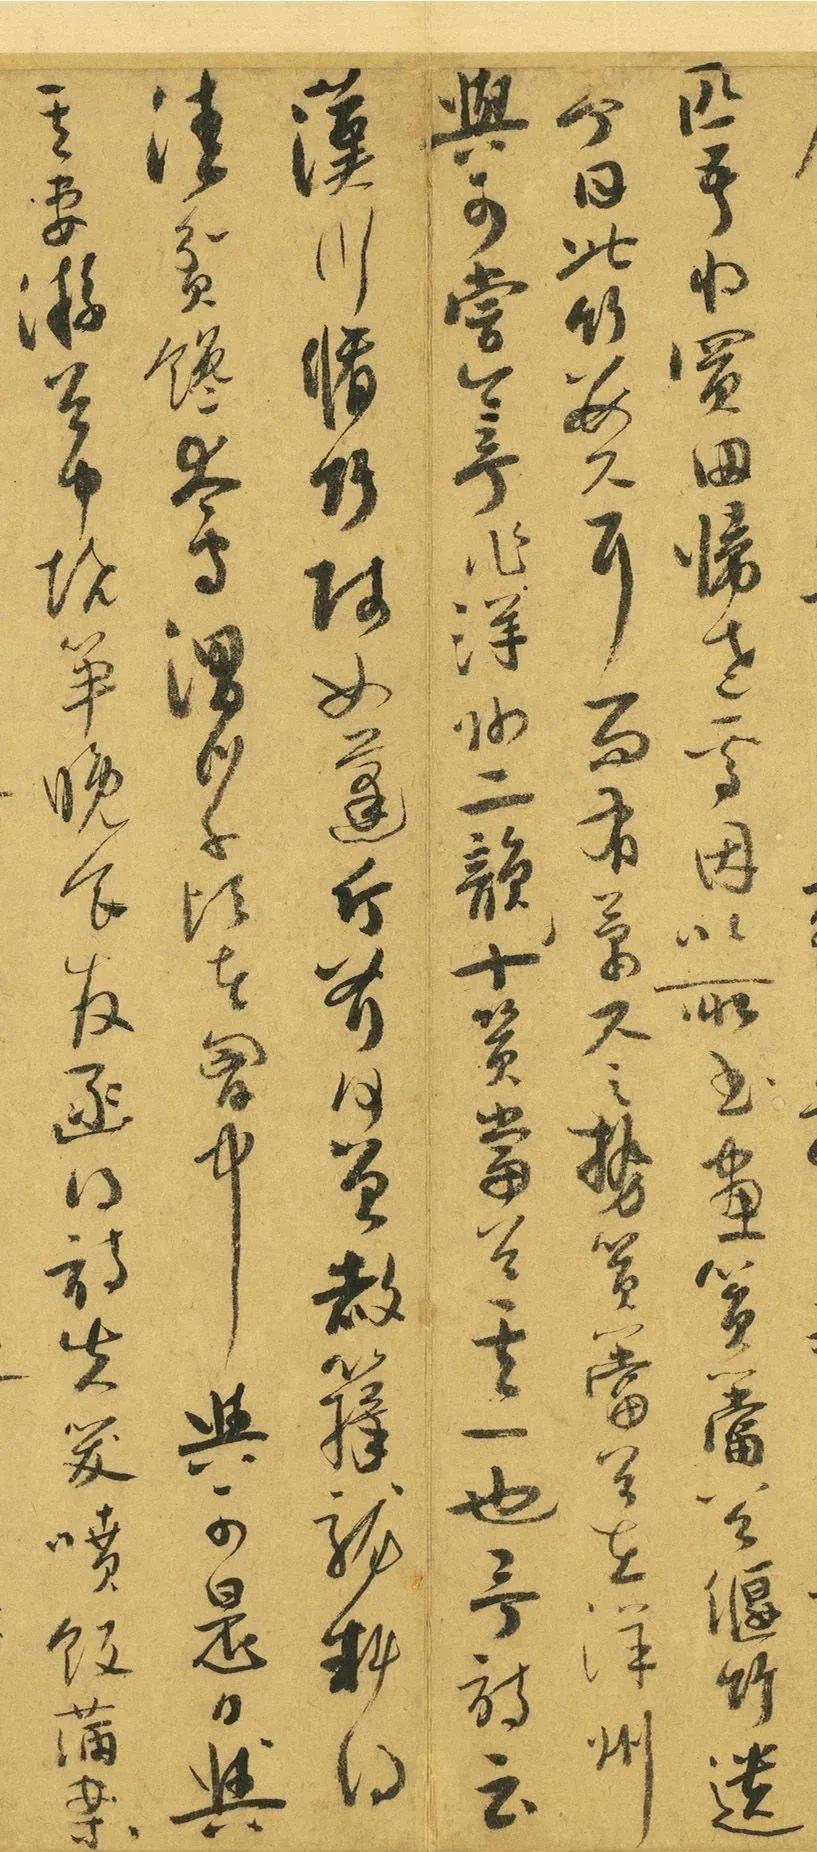 匹吾將買田歸老焉因以所書畫篔簹谷偃竹遺
今日此竹數尺耳而有萬尺之勢篔簹谷在洋州
與可嘗令予作洋州二韻十篔簹谷其一也予詩云
漢川脩竹賤如蓬斤斧何曾赦籜龍料得
清貧饞太守渭川千頃在胷中與可是日與
其妻游谷中燒筍晚食發函得詩失笑噴飯滿案